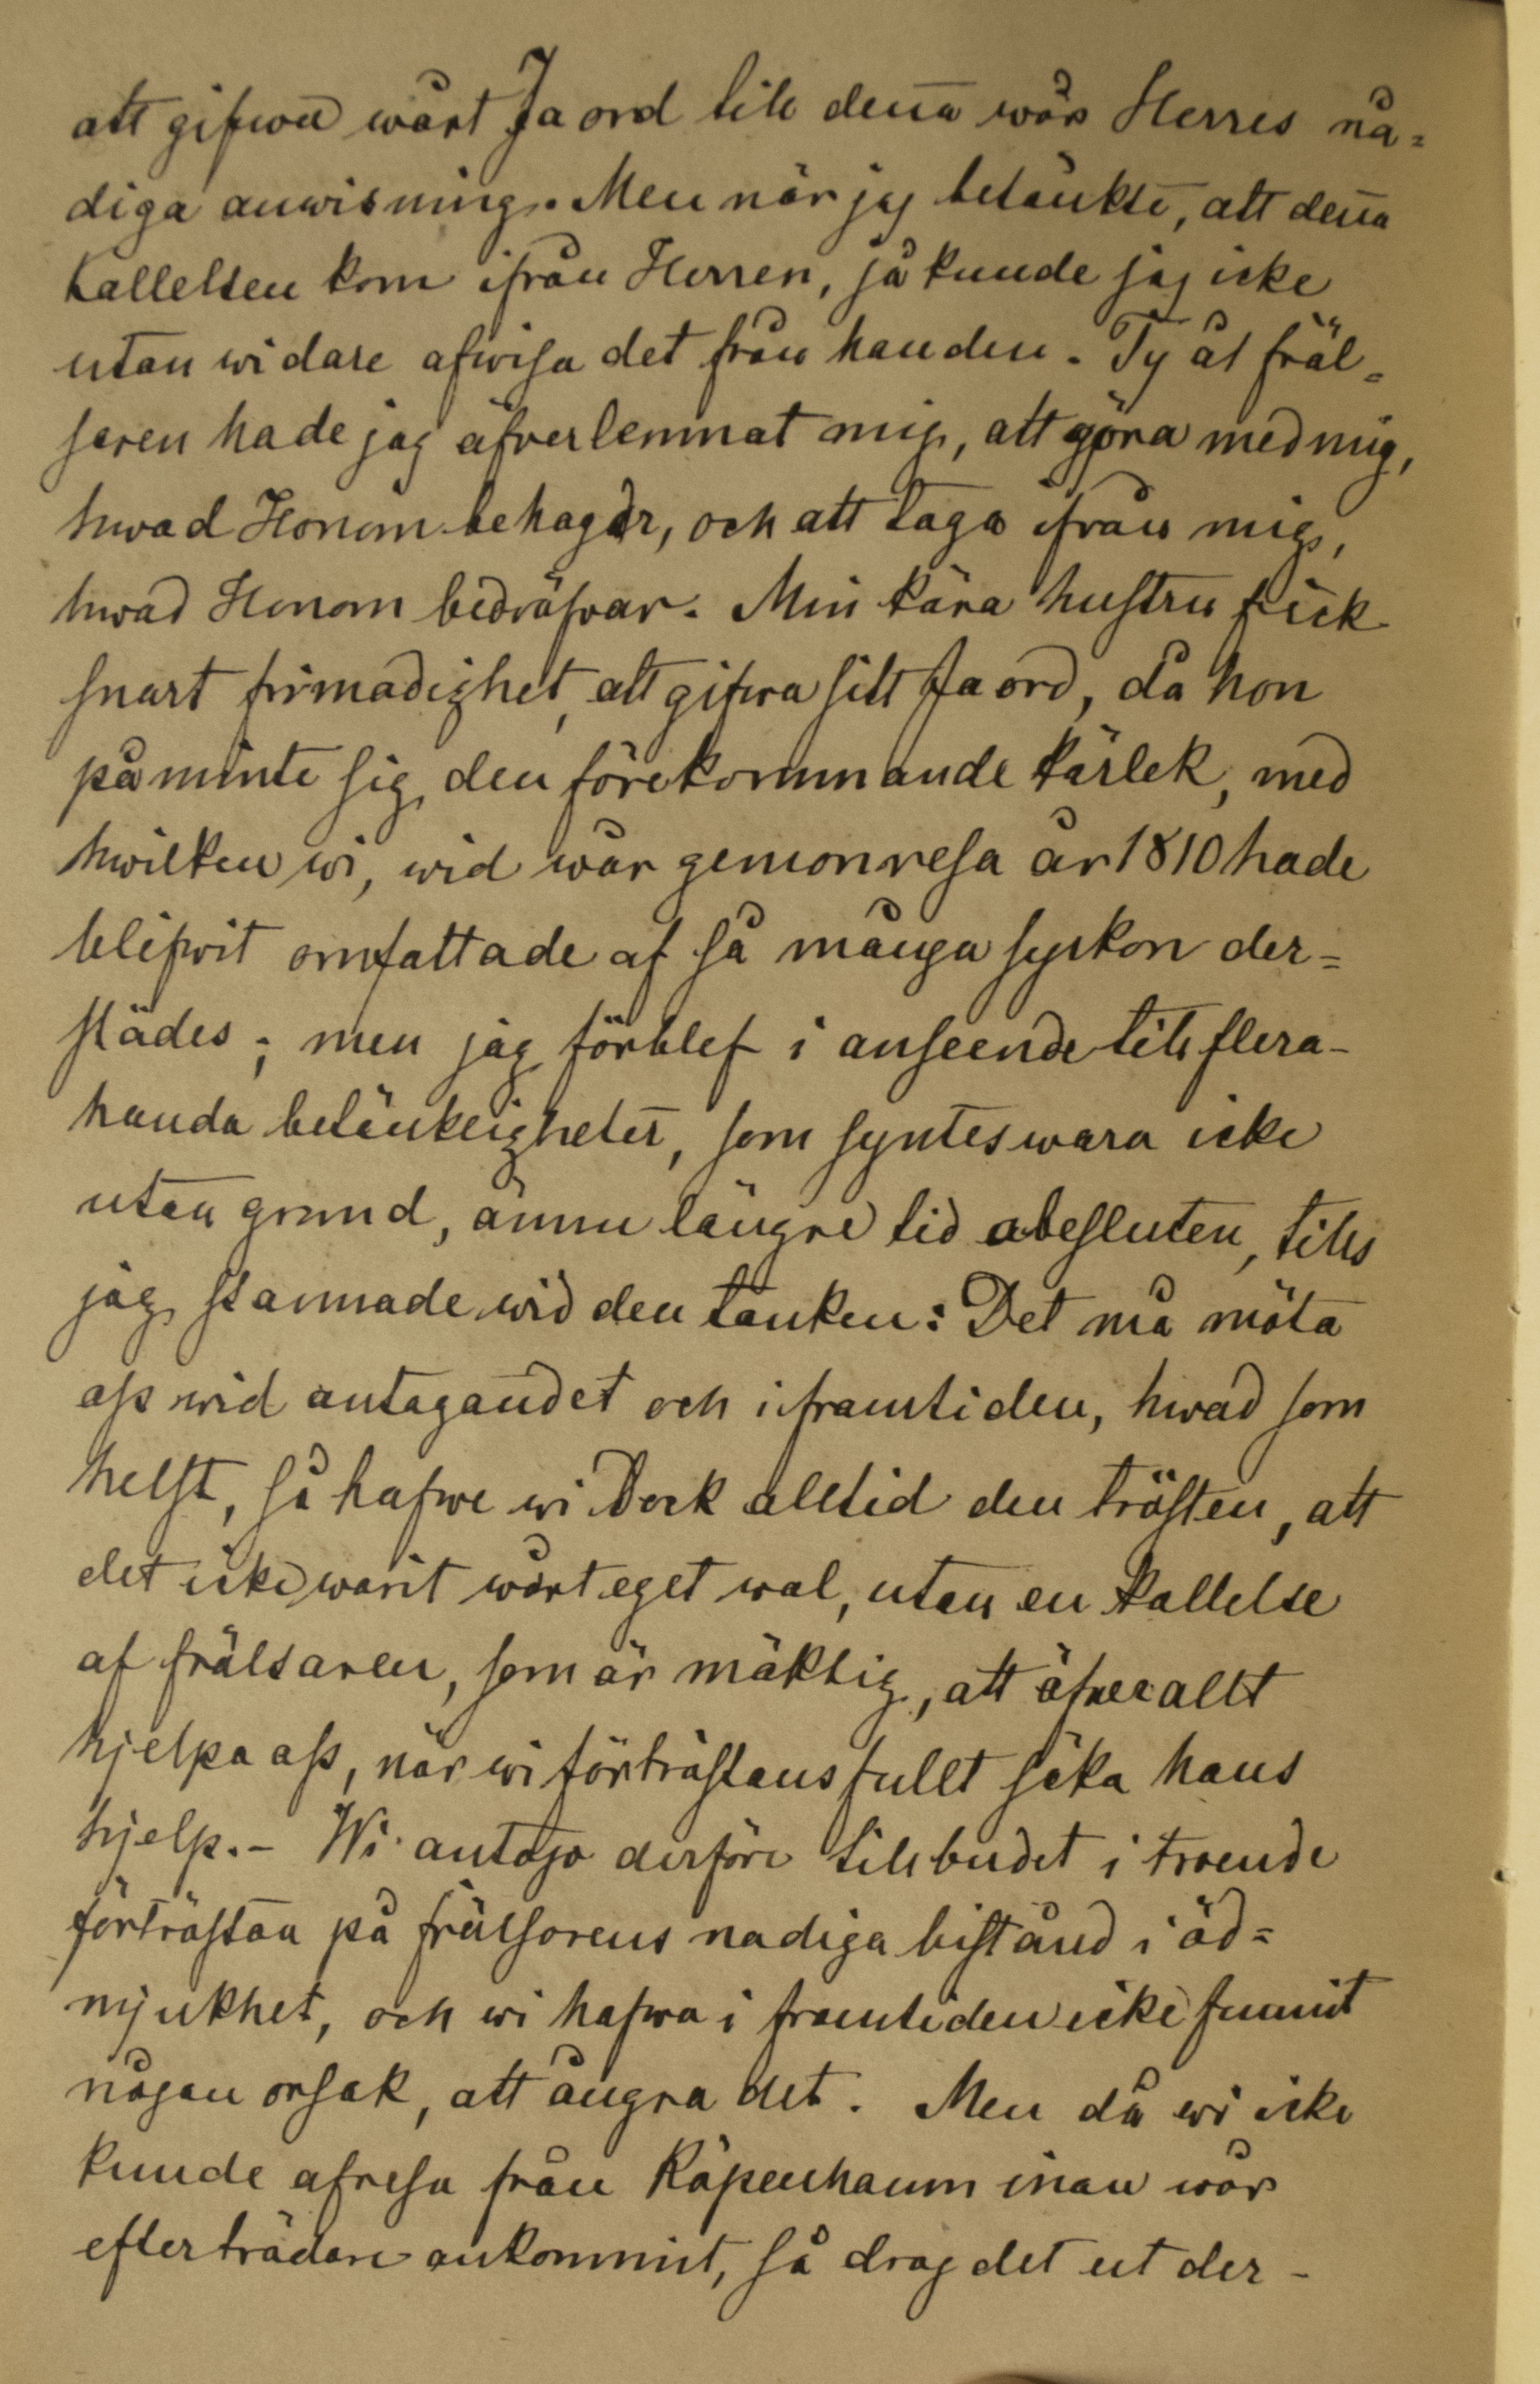 att gifwa wårt Ja ord till denna wår Herres nå=
diga anwisning. Men när jag betänkte, att denna
kallelsen kom ifrån Herren, så kunde jag icke
utan widare afwisa det från handen. Ty åt fräl=
saren hade jag öfverlemnat mig, att göra med mig,
hwad Honom behagar, och att taga ifrån mig,
hwad Honom bedröfvar. Min kära hustru fick
snart frimodighet, att gifwa sitt Ja ord, då hon
påminte sig, den förekommande kärlek, med
hwilken wi, wid wår genomresa år 1810 hade
blifwit omfattade af så många syskon der=
städes; men jag förblef i anseende till flera-
handa betänkligheter, som syntes wara icke
utan grund, ännu längre tid obesluten, tills
jag stannade wid den tanken: Det må möta
oss wid antagandet och i framtiden, hwad som
helst, så hafwe wi Dock alltid den trösten, att
det icke warit wårt eget wal, utan en kallelse
af frälsaren, som är mäktig, att öfver allt
hjelpa oss, när wi förtröstansfullt söka hans
hjelp. – Wi antogo derföre tillbudet i troende
förtröstan på frälsarens nadiga bistånd i öd=
mjukhet, och wi hafwa i framtiden icke funnit
någon orsak, att ångra det. Men då wi icke
kunde afresa från Köpenhamn innan wår
efterträdare ankommit, så drog det ut der-